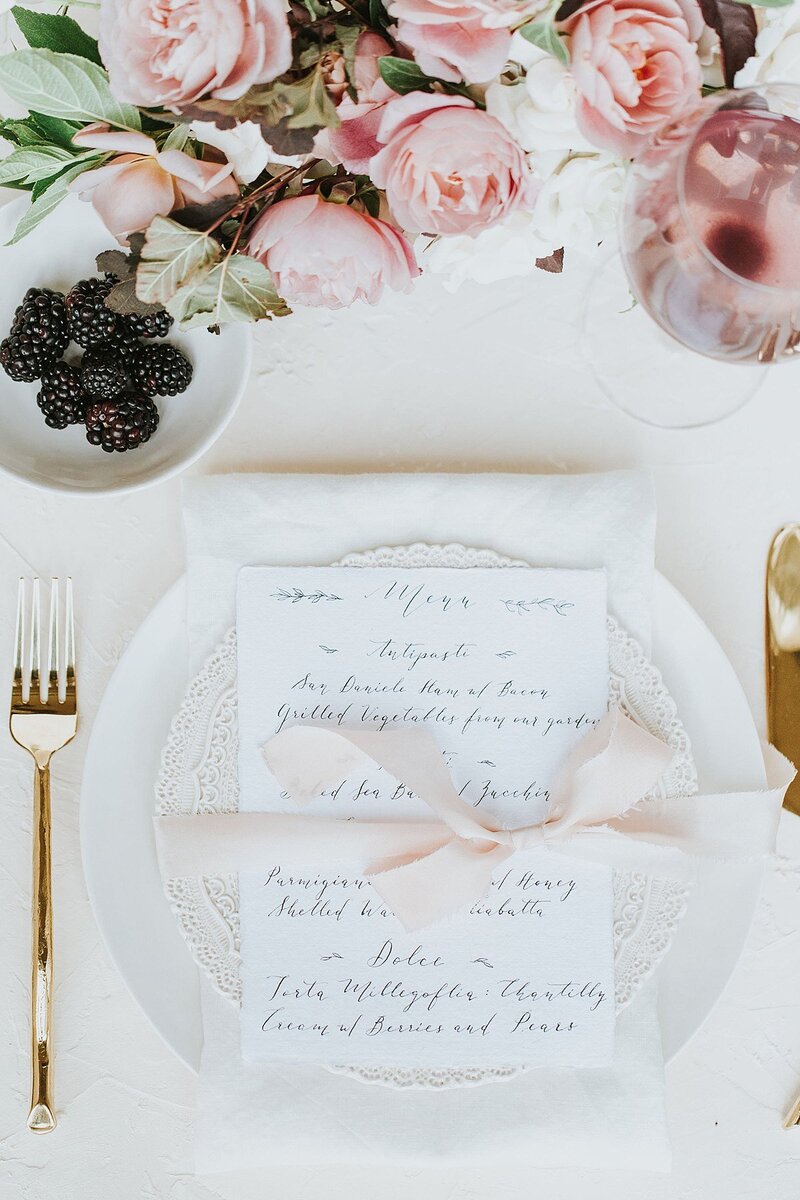 Menu
Antipasti
San Daniele Ham w/ Bacon
Grilled Vegetables from our garden
Sea Zucchin
Parmigiano w/ Honey
Shelled Ciabatta
Dolce
Torta Millegoflia: Chantilly
Cream w/ Berries and Pears